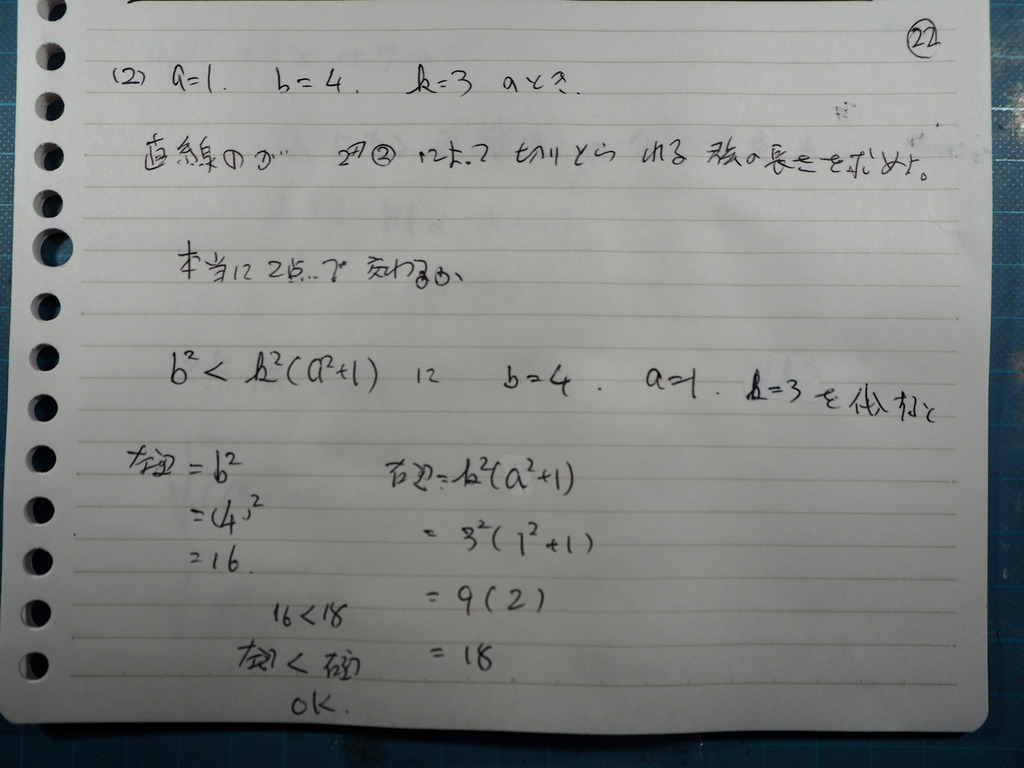 ㉒
(2) a=1. b=4. k=3 のとき.
直線①が 円②によって切りとられる弦の長さを求めよ。
本当に2点で交わるか、
b²<k²(a²+1) に b=4. a=1. k=3を代入すると
左辺=b² 右辺=k²(a²+1)
=(4)² = 3²(1²+1)
=16. = 9(2)
16<18
左辺<右辺 = 18
OK.